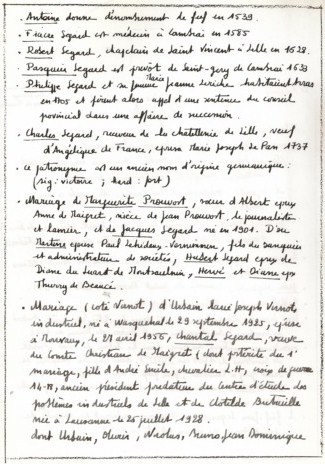 . Antoine donne dénombrement du fief en 1539.
. Fiacre Segard est médecin à Cambrai en 1585
. Robert Segard, chapelain de Saint Vincent à Lille en 1628.
. Pasquier Segard est prévôt de Saint-Géry de Cambrai 1633
. Philippe Segard et sa femme Marie Jeanne Leriche habitaient Arras
en 1705 et firent alors appel d'une sentence du conseil
provincial dans une affaire de succession.
. Charles Segard, receveur de la châtellenie de Lille, veuf
d'Angélique de France, épousa Marie Joseph de Pan 1737
. ce patronyme est un ancien nom d'origine germanique:
(sig: victoire ; hard: fort)
. Mariage de Marguerite Prouvost, sœur d'Albert épx
Anne de Maigret, nièce de Jean Prouvost, le journaliste
et lainier, et de Jacques Segard né en 1901. D'où
Martine épouse Paul Lehideux-Vernimmen, fils du banquier
et administrateur de sociétés, Hubert Segard épx de
Diane du Suard de Montsaulnin, Hervé et Diane ep
Thierry de Beaucé.
. Mariage (coté Vernot) d'Urbain Marie Joseph Vernots
industriel, né à Wasquehal le 29 septembre 1925, épouse
à Mouvaux, le 28 avril 1956, Chantal Segard, veuve
du Comte Christian de Maigret (dont postérité du 1°
mariage, fille d'André Emile, chevalier L.H, croix de guerre
14-18, ancien président fondateur du Centre d'étude des
problèmes industriels de Lille et de Clotilde
née à Lausanne le 25 juillet 1928.
dont Urbain, Olivier, Nicolas, Bruno Jean Dominique